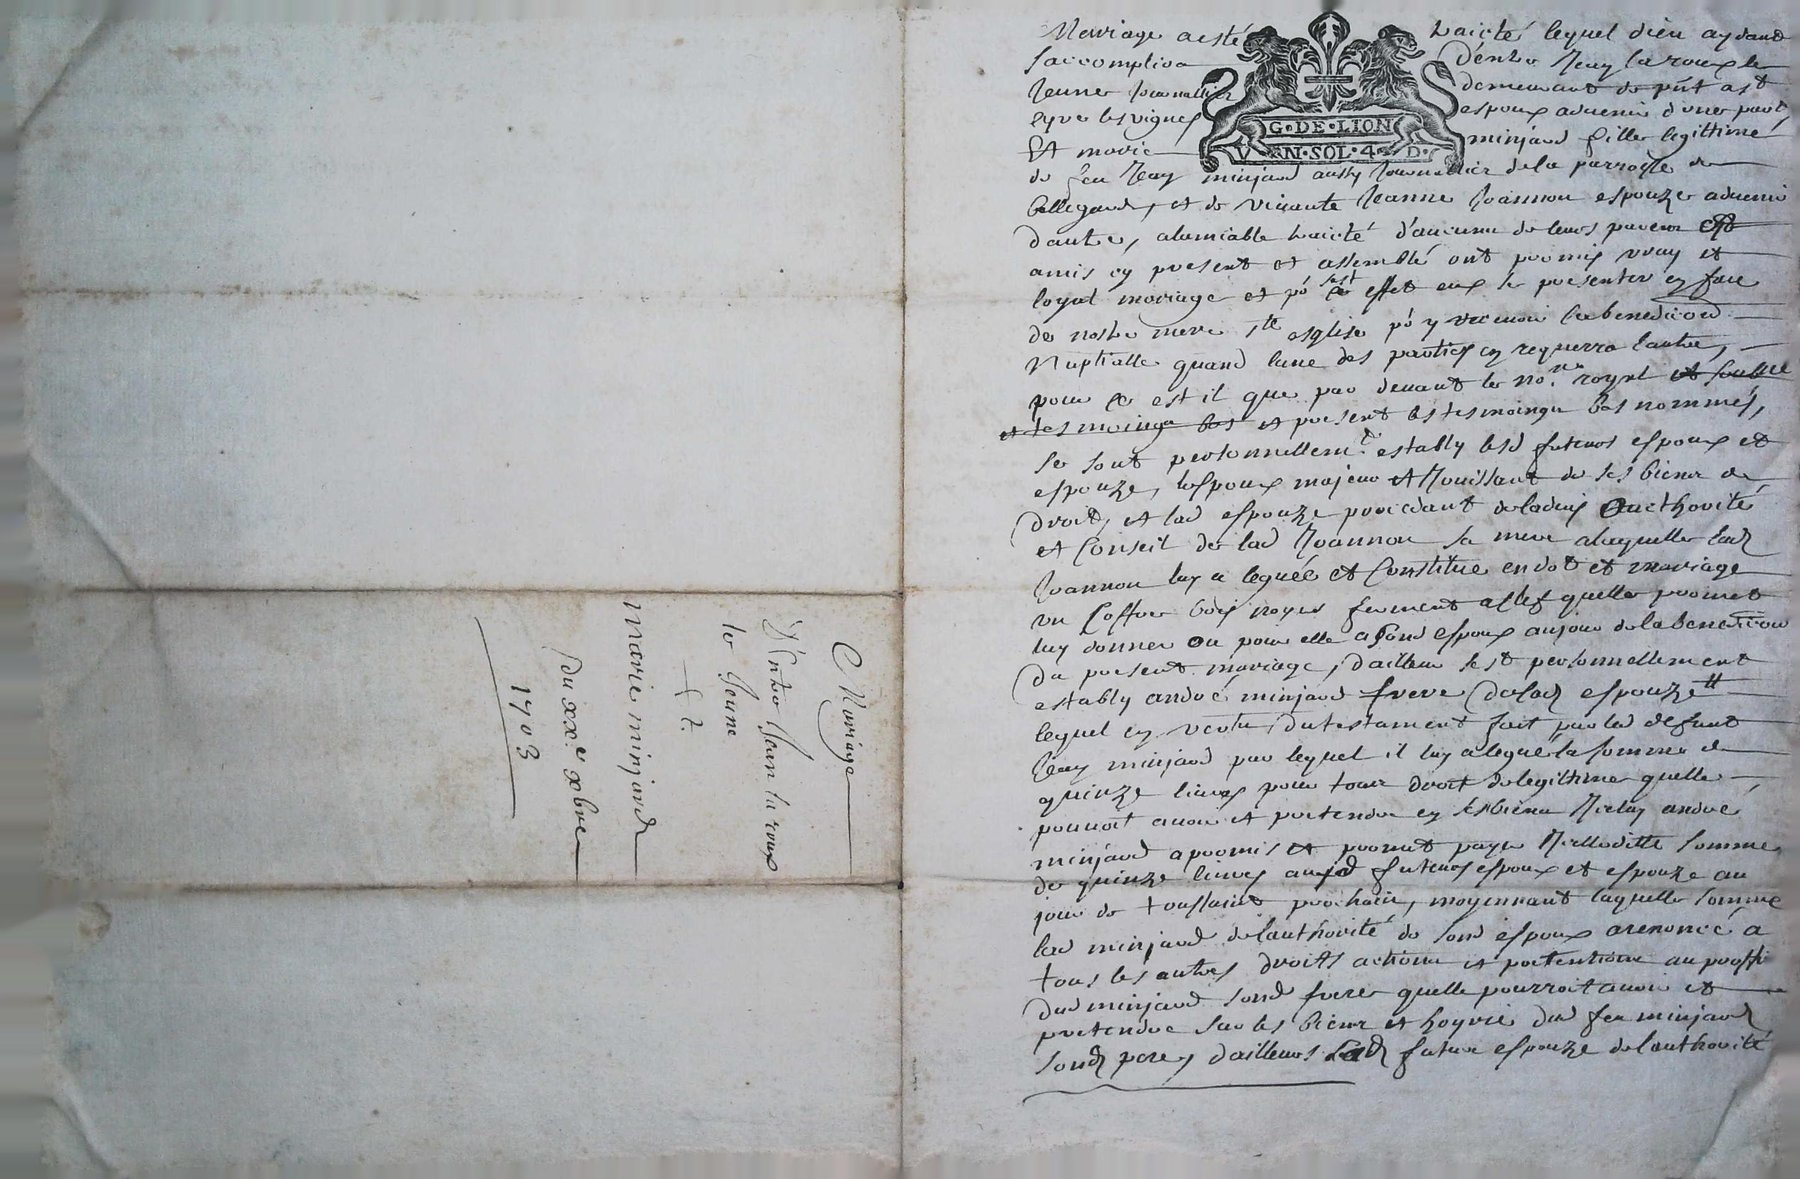 Mariage
D'entre Jean la roux
le Jeune
Et
marie minjard
Du xxe xbre
1703
Mariage a esté traicté lequel dieu aydant
saccomplira D'entre Jean la roux le
Jeune Journallier demeurant de pnt a st
cyr les vignes espoux advenir d'une part,
Et marie minjard fille legittime
de feu Jean minjard aussy Journallier de la parroisse de
bellegarde, et de vivante Jeanne Joannon espouze advenir
dautre, alamiable traicté d'aucuns de leurs parens et
amis cy present et assemblé ont promis vray et
loyal mariage et po cest effet eux se presenter en face
de nostre mere ste esglise po y recevoir la benediction
Nuptialle quand lune des parties en requerra lautre,
pour ce est il que par devant le nore royal et soubz
et tesmoings bas et present les tesmoings bas nommés,
se sont personnellemt estably lesd futurs espoux et
espouze, lespoux majeur et Jouissant de ses biens et
droits, et lad espouze procedant de ladvis authorité
et Conseil de lad Joannon sa mere a laquelle lad
Joannon luy a legué et Constitue en dot et mariage
un Coffre bois noyer ferment a clef quelle promet
luy donner ou pour elle a sond espoux au jour de la benediction
du present mariage, dailleur sest personnellement
estably andré minjard frere de lad espouze
lequel en vertu du testament fait par led deffunt
Jean minjard par lequel il luy a legué la somme de
quinze livres pour tous droit de legittime quelle
pouvoit avoir et pretendre en ses biens Icelluy andré
minjard a promis et promet payer Icelle ditte somme
de quinze livres ausd futurs espoux et espouze au
jour de toussaint prochain, moyennant laquelle somme
lad minjard de lauthorité de sond espoux a renoncé a
tous les autres droits actions et pretentions au proffit
dud minjard sond frere quelle pourroit avoir et
pretendre sur les biens et hoyrie dud feu minjard
sond pere, dailleurs lad future espouze de lauthorité
G·DE·LION
VN·SOL·4·D·